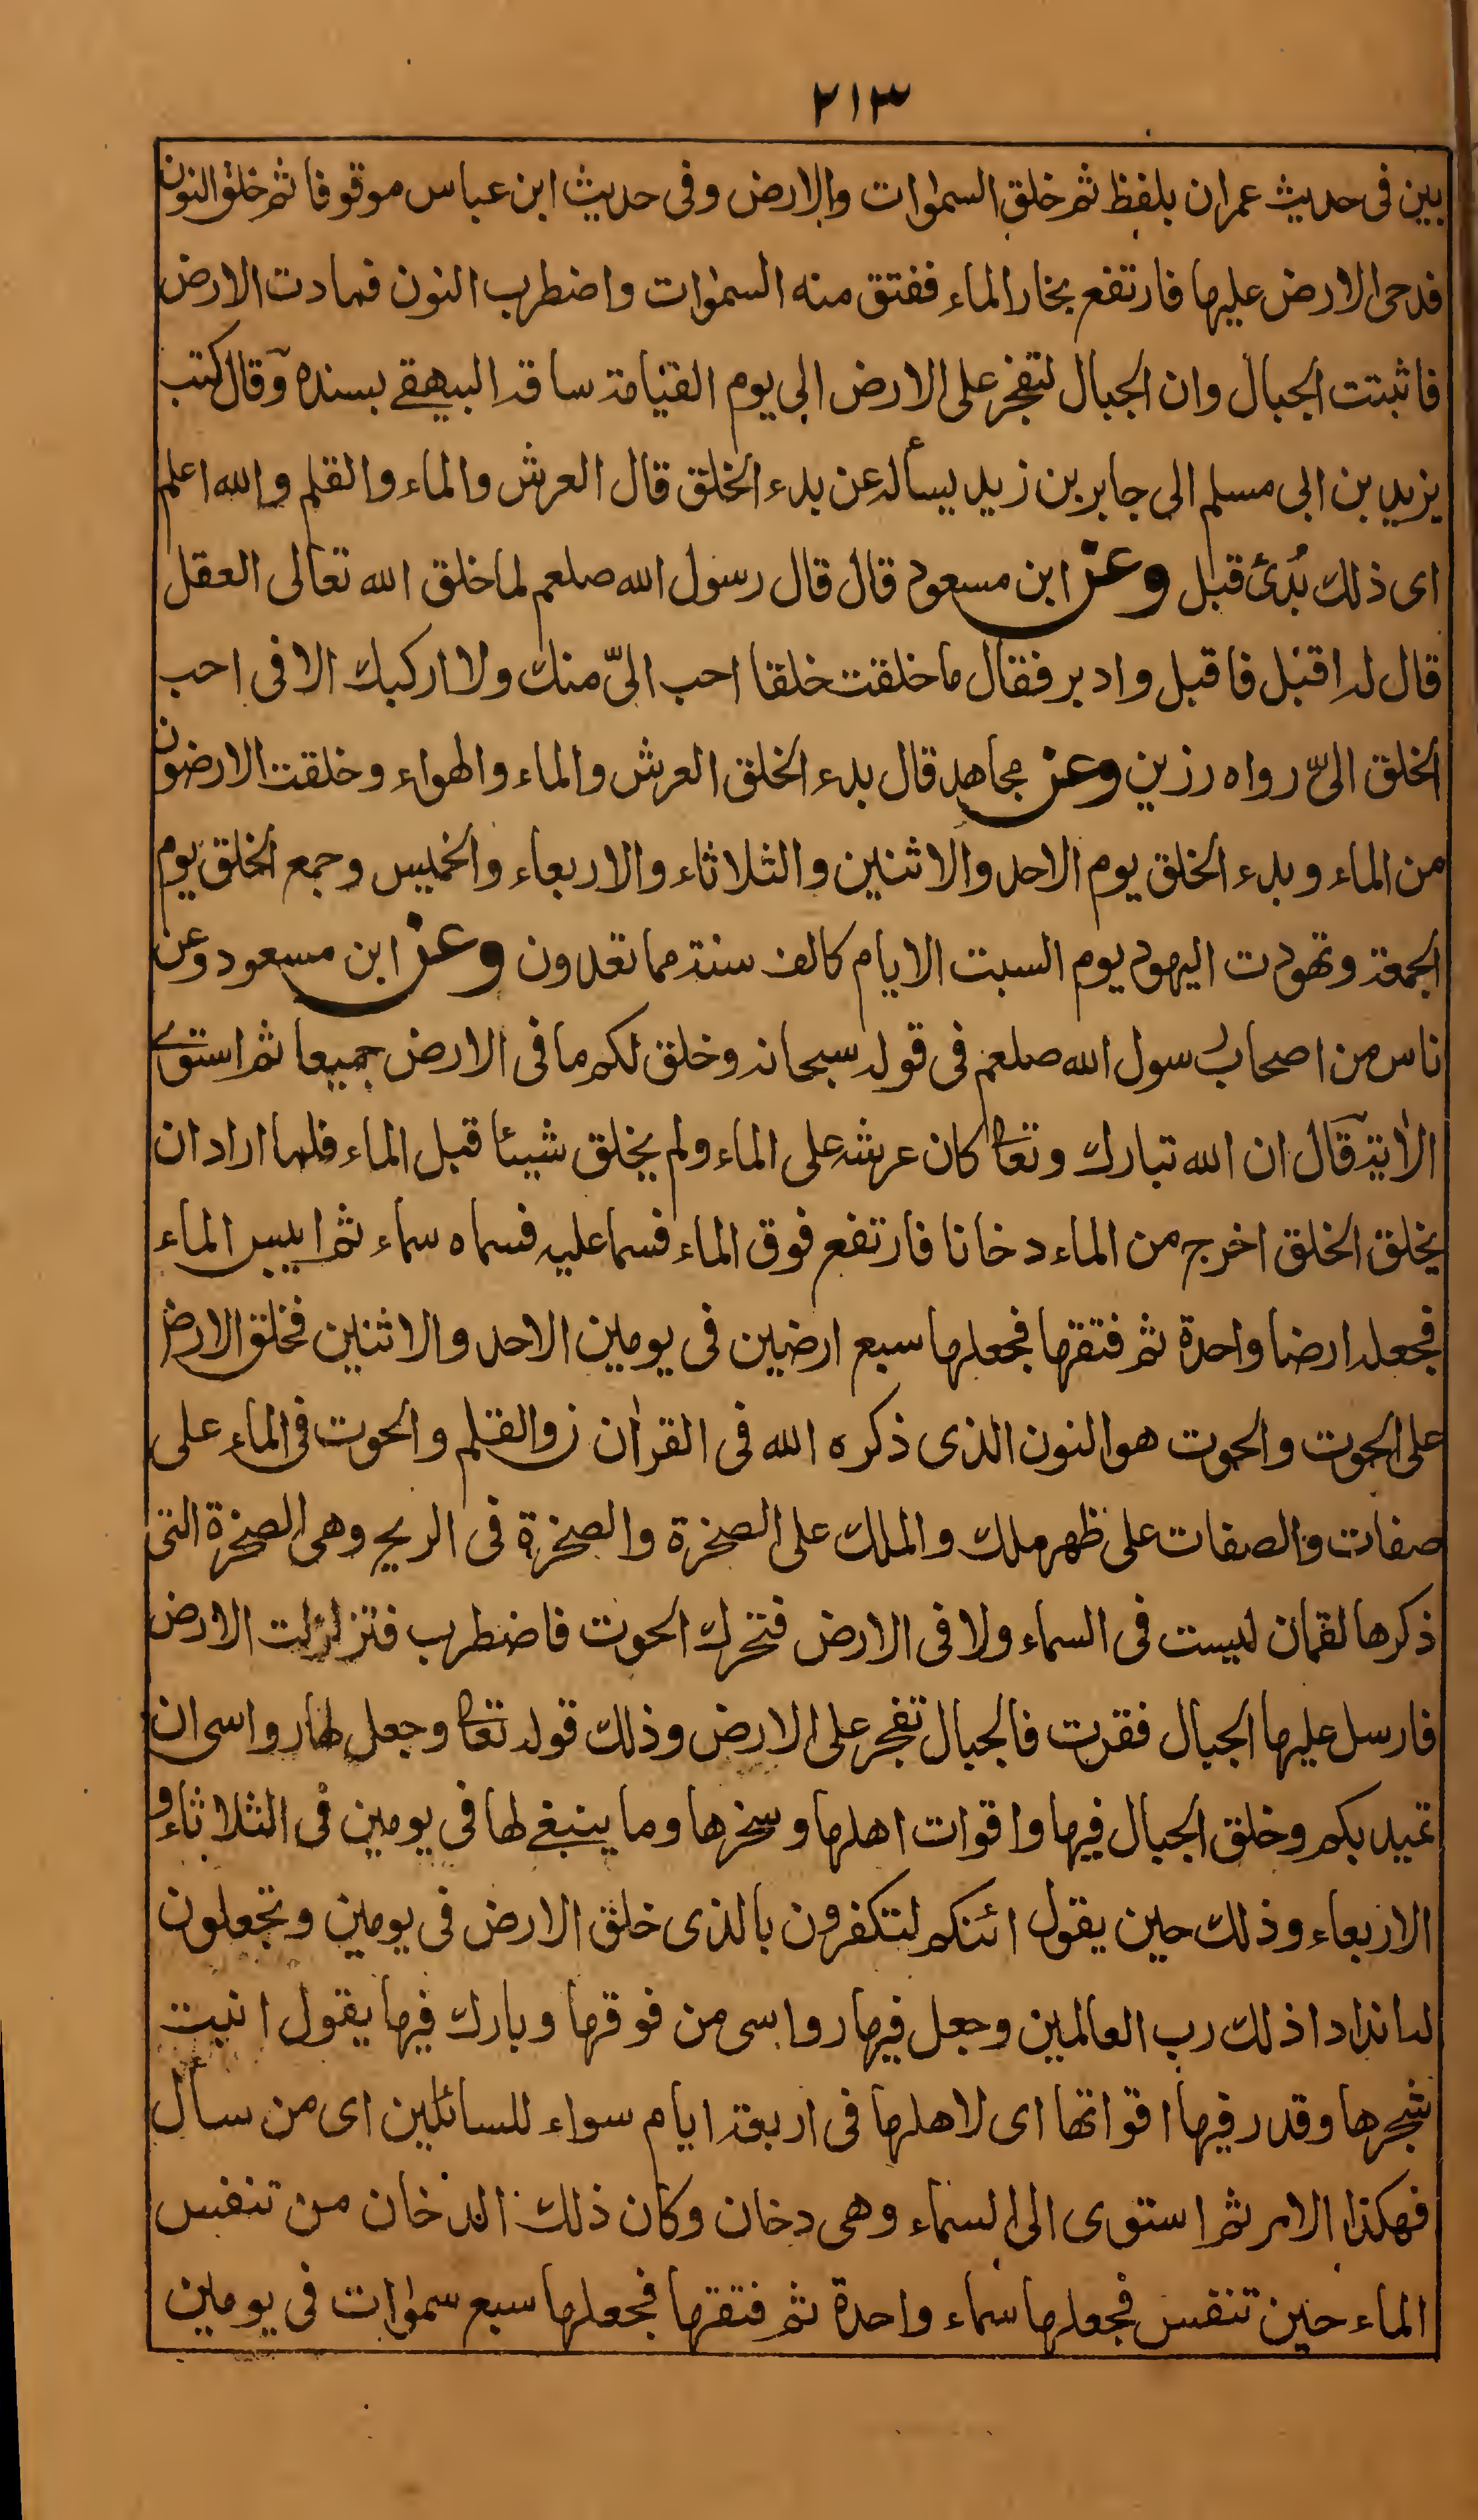 ٢١٣
بين فى حديث عمران بلفظ ثم خلق السمٰوات والارض وفى حديث ابن عباس موقوفا ثم خلق النون
فدحى الارض عليها فارتفع بخار الماء ففتق منه السمٰوات واضطرب النون فمادت الارض
فاثبتت الجبال وان الجبال لتفخر على الارض الى يوم القيامة ساقه البيهقے بسنده وقال كتب
يزيد بن ابى مسلم الى جابر بن زيد يسأله عن بدء الخلق قال العرش والماء والقلم والله اعلم
اى ذلك بُدئ قبل وعن ابن مسعود قال قال رسول الله صلعم لما خلق الله تعالى العقل
قال له اقبل فاقبل وادبر فقال ما خلقت خلقا احب الىّ منك ولا اركبك الا فى احب
الخلق الىّ رواه رزين وعن مجاهد قال بدء الخلق العرش والماء والهواء وخلقت الارضون
من الماء وبدء الخلق يوم الاحد والاثنين والثلاثاء والاربعاء والخميس وجمع الخلق يوم
الجمعة وتهودت اليهود يوم السبت الايام كالف سنة مما تعدون وعن ابن مسعود وعن
ناس من اصحاب رسول الله صلعم فى قوله سبحانه وخلق لكم ما فى الارض جميعا ثم استوے
الاٰية قال ان الله تبارك وتعا كان عرشه على الماء ولم يخلق شيئا قبل الماء فلما اراد ان
يخلق الخلق اخرج من الماء دخانا فارتفع فوق الماء فسما عليه فسماه سماء ثم ايبس الماء
فجعله ارضا واحدة ثم فتقها فجعلها سبع ارضين فى يومين الاحد والاثنين فخلق الارض
على الحوت والحوت هو النون الذى ذكره الله فى القراٰن ن والقلم والحوت فى الماء على
صفات والصفات على ظهر ملك والملك على الصخرة والصخرة فى الريح وهى الصخرة التى
ذكرها لقمان ليست فى السماء ولا فى الارض فتحرك الحوت فاضطرب فتزلزلت الارض
فارسل عليها الجبال فقرت فالجبال تفجر على الارض وذلك قوله تعا وجعل لها رواسى ان
تميد بكم وخلق الجبال فيها واقوات اهلها وسخرها وما ينبغے لها فى يومين فى الثلاثاء و
الاربعاء وذلك حين يقول ائنكم لتكفرون بالذى خلق الارض فى يومين وتجعلون
له اندادا ذلك رب العالمين وجعل فيها رواسى من فوقها وبارك فيها يقول انبت
شجرها وقدر فيها اقواتها اى لاهلها فى اربعة ايام سواء للسائلين اى من سأل
فهكذا الامر ثم استوى الى السماء وهى دخان وكان ذلك الدخان من تنفس
الماء حين تنفس فجعلها سماء واحدة ثم فتقها فجعلها سبع سمٰوات فى يومين